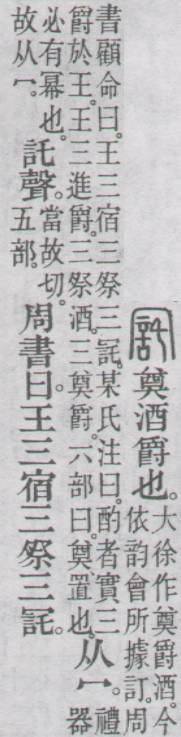 奠酒爵也。大徐作奠爵酒。今依韵會所據訂。周
書顧命曰。王三宿三祭三。某氏注曰。酌者實三爵於王。王三進爵。三祭酒。三奠爵。六部曰。奠置也。从冖。禮器
必有冪也。故从冖。託聲。當故切。五部。周書曰。王三宿三祭三。